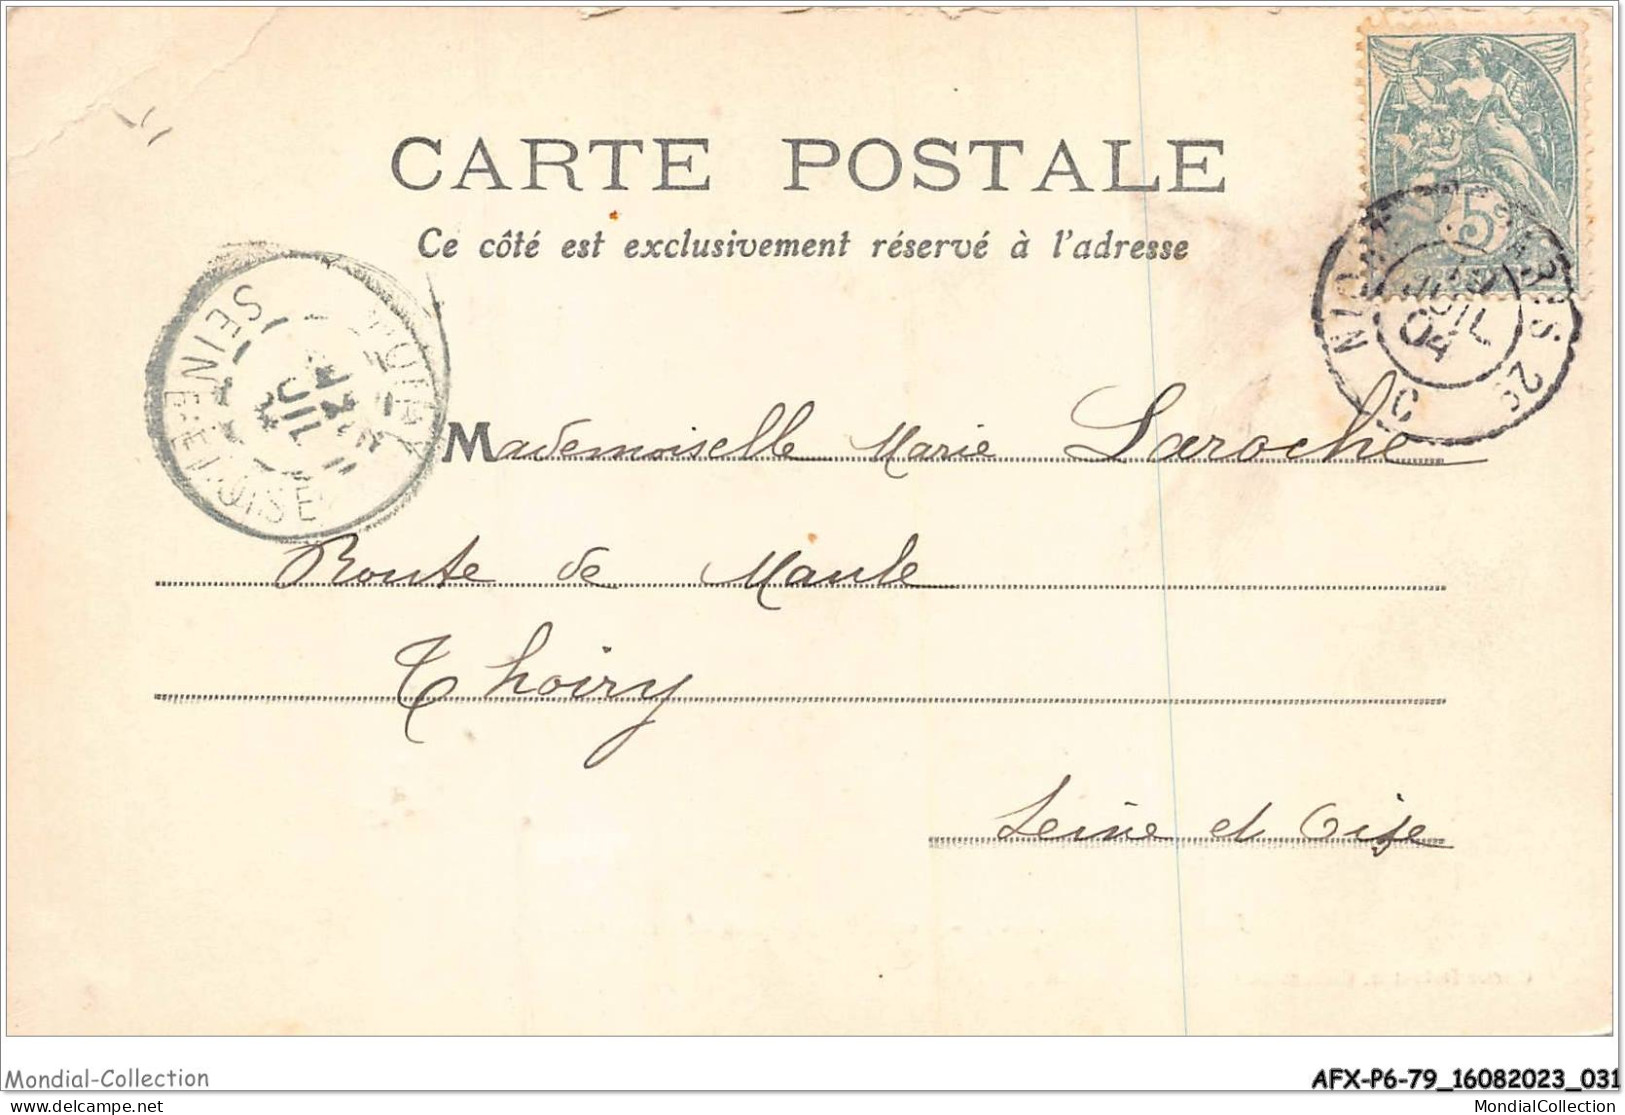 CARTE POSTALE
Ce côté est exclusivement réservé à l'adresse
5
JUIL
04
SEINE-ET-OISE
JUIL
Mademoiselle Marie Laroche
Route de Maule
Thoiry
Seine et Oise
Mondial-Collection
AFX-P6-79_16082023_031
delcampe.net
MondialCollection